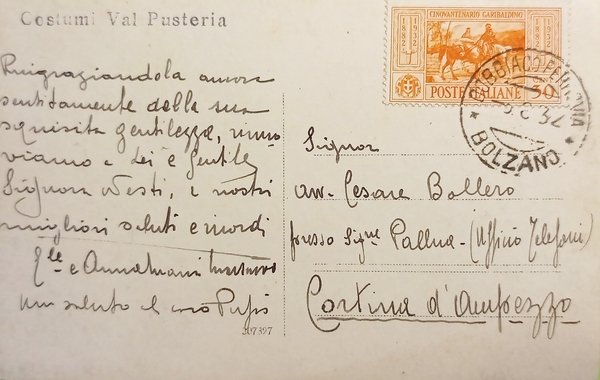 Costumi Val Pusteria
Ringraziandola ancora
sentitamente della sua
squisita gentilezza, inno
viamo a Lei e Gentile
Signora Vesti, i nostri
migliori saluti e ricordi
e Annamaria
un saluto al caro Pupi
307397
1882 1932
CINQVANTENARIO GARIBALDINO
POSTE ITALIANE 30
DOBBIACO FERROVIA
8.32
* BOLZANO *
Signor
avv. Cesare Ballero
presso Sigre Pallua - (Ufficio Telefoni)
Cortina d'Ampezzo